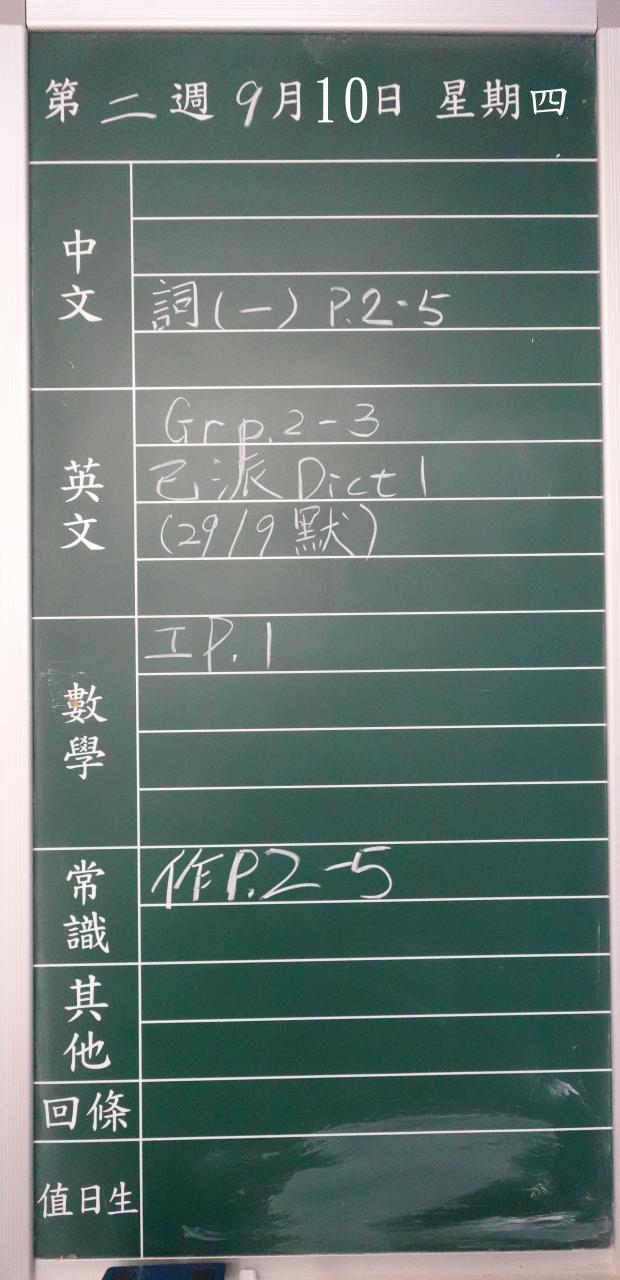 第二週 9月10日 星期四
中文
詞(一) P.2-5
英文
Gr p.2-3
已派 Dict 1
(29/9 默)
數學
工P.1
常識
作P.2-5
其他
回條
值日生